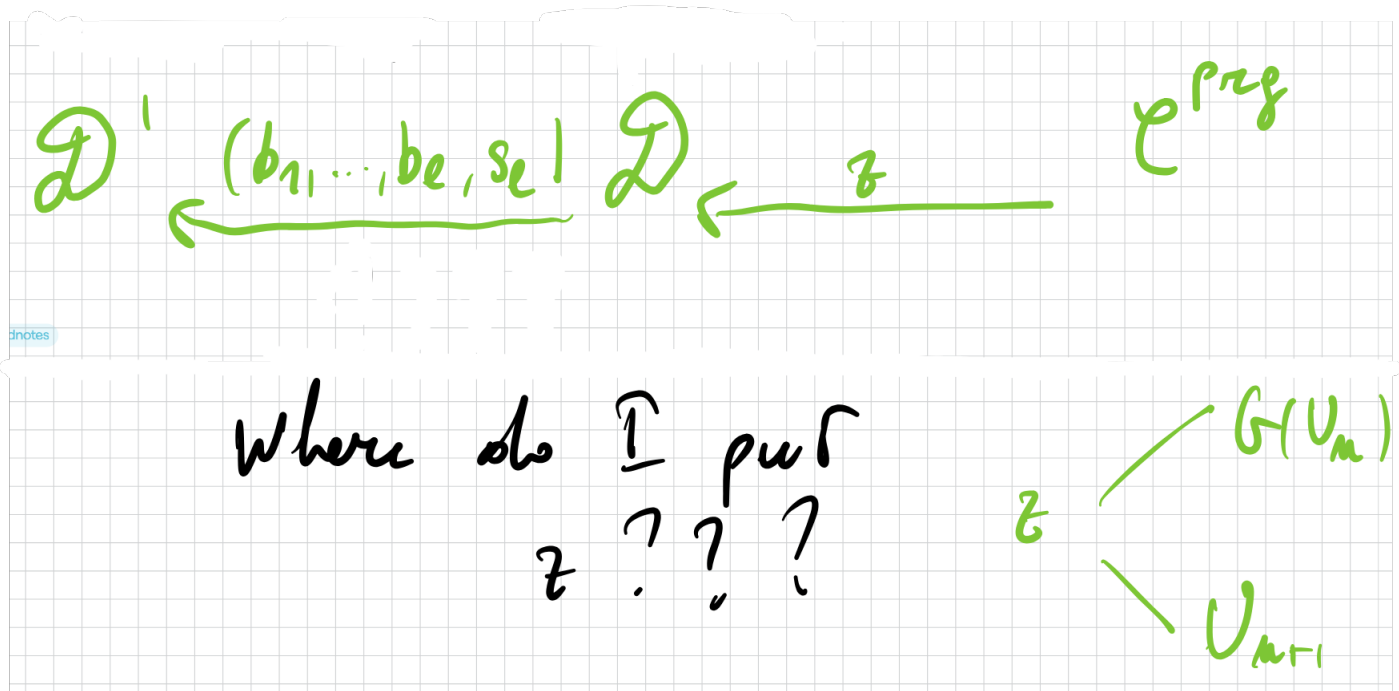 D' (b1,...,be,se) D z C^prg
dnotes
Where do I put
z ? ? ?
z G(Um)
Um+1